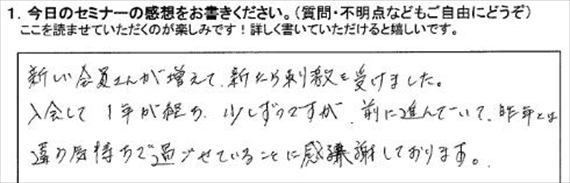 1. 今日のセミナーの感想をお書きください。(質問・不明点などもご自由にどうぞ)
ここを読ませていただくのが楽しみです！詳しく書いていただけると嬉しいです。
新しい会員さんが増えて、新たな刺激を受けました。
入会して1年が経ち、少しずつですが、前に進んでいて、昨年とは
違う気持ちで過ごせていることに感謝しております。